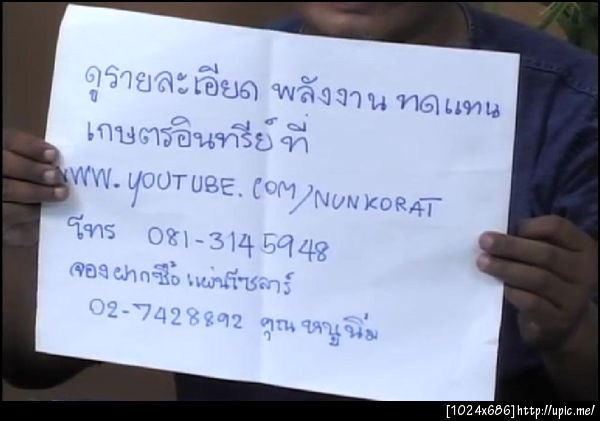 ดูรายละเอียด พลังงาน ทดแทน
เกษตรอินทรีย์ ที่
WWW.YOUTUBE.COM/NUNKORAT
โทร 081-3145948
จองฝากซื้อ แผ่นโซลาร์
02-7428892 คุณ หนูนิ่ม
[1024x686]http://upic.me/